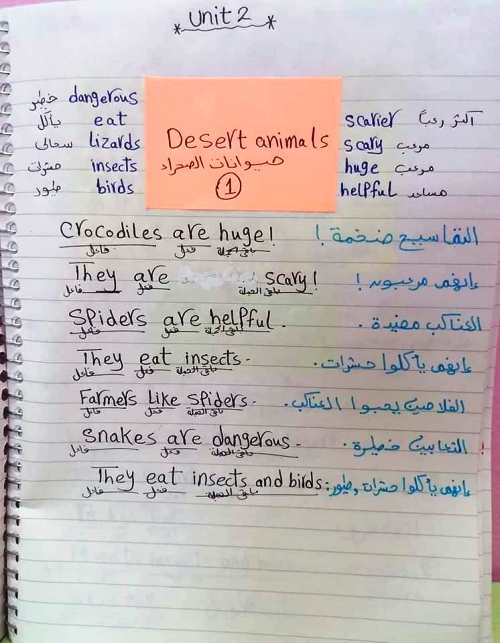 * Unit 2 *
dangerous خطير
eat يأكل
lizards سحالى
insects حشرات
birds طيور
Desert animals
حيوانات الصحراء
1
scarier أكثر رعباً
scary مرعب
huge مرعب
helpful مساعد
Crocodiles are huge! التماسيح ضخمة !
فاعل فعل باقى الجملة
They are scary! إنهم مرعبون !
فاعل فعل باقى الجملة
Spiders are helpful. العناكب مفيدة .
فاعل فعل باقى الجملة
They eat insects. إنهم يأكلوا حشرات .
فاعل فعل باقى الجملة
Farmers like spiders. الفلاحين يحبوا العناكب .
فاعل فعل باقى الجملة
Snakes are dangerous. الثعابين خطيرة .
فاعل فعل باقى الجملة
They eat insects and birds. إنهم يأكلوا حشرات , طيور
فاعل فعل باقى الجملة